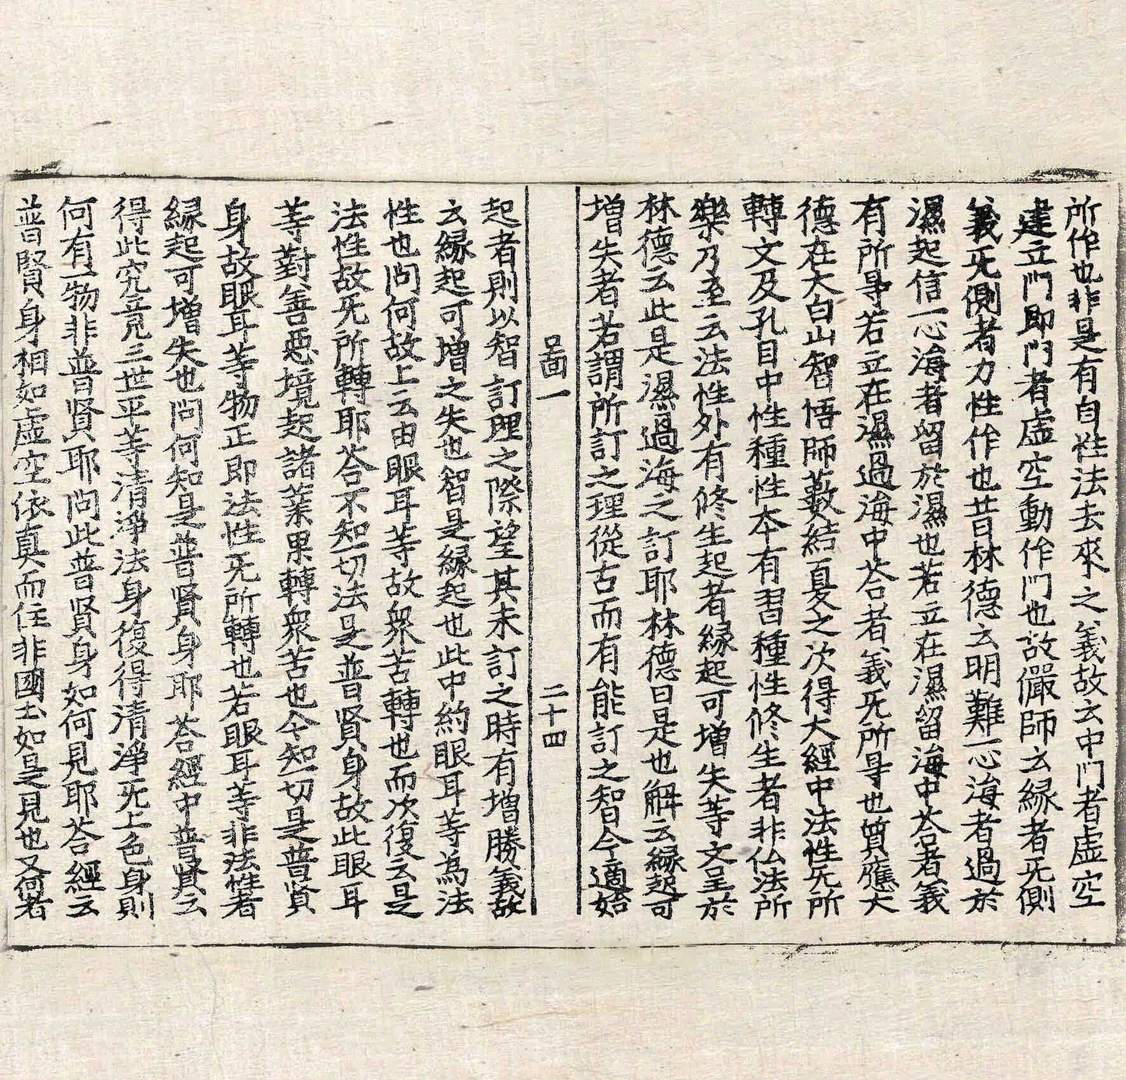 所作也非是有自性法去來之義故玄中門者虛空
建立門即門者虛空動作門也故儼師云緣者旡側
義旡側者力性作也昔林德云明難一心海者過於
濕起信一心海者留於濕也若立在濕留海中荅者義
有所㝵若立在濕過海中荅者義旡所㝵也質應大
德在大白山智悟師藪結夏之次得大經中法性旡所
轉文及孔目中性種性本有習種性修生者非仏法所
樂乃至云法性外有修生起者緣起可增失等文呈於
林德云此是濕過海之訂耶林德曰是也解云緣起可
增失者若謂所訂之理從古而有能訂之智今適始
啚一
二十四
起者則以智訂理之際望其未訂之時有增勝義故
云緣起可增之失也智是緣起也此中約眼耳等為法
性也問何故上云由眼耳等故衆苦轉也而次復云是
法性故旡所轉耶荅不知一切法是普賢身故此眼耳
等對善惡境起諸業果轉衆苦也今知一切是普賢
身故眼耳等物正即法性旡所轉也若眼耳等非法性者
緣起可增失也問何知是普賢身耶荅經中普賢云
得此究竟三世平等清淨法身復得清淨旡上色身則
何有一物非普賢耶問此普賢身如何見耶荅經云
普賢身相如虛空依真而住非國土如是見也又何者